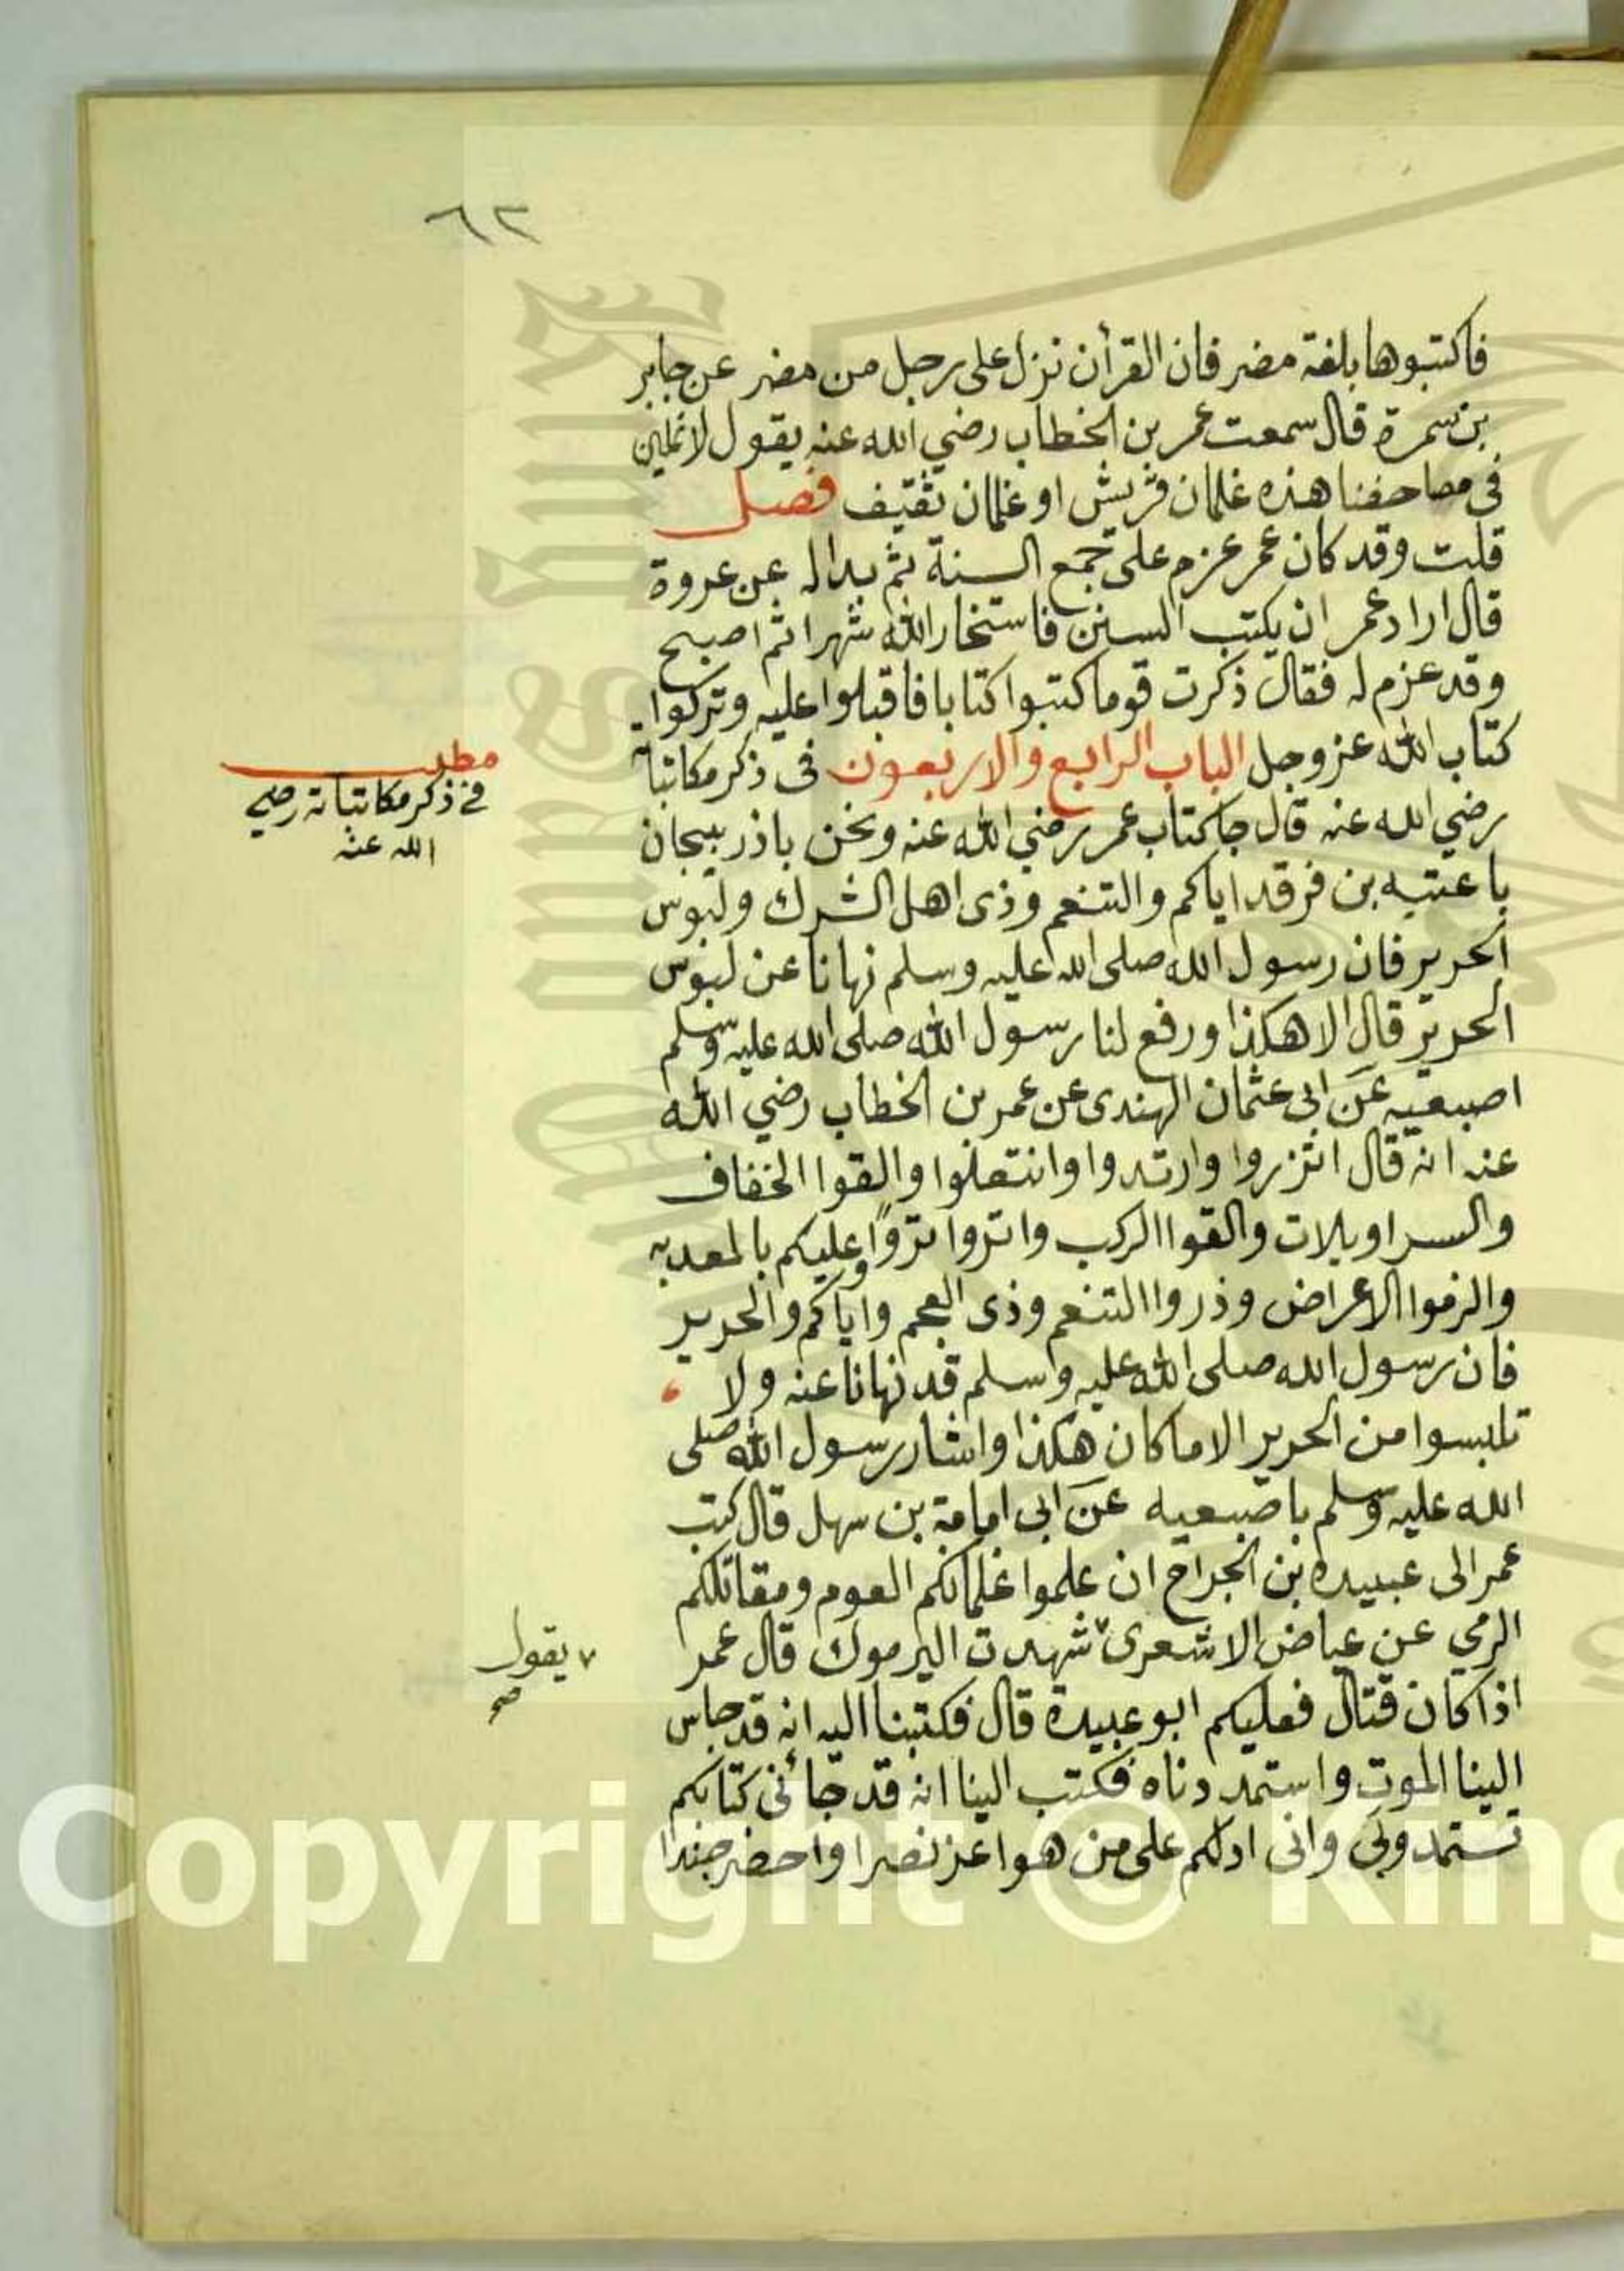 ٦٣
فاكتبوها بلغة مضر فان القرأن نزل على رجل من مضر عن جابر
بن سمرة قال سمعت عمر بن الخطاب رضي الله عنه يقول لا تملين
فى مصاحفنا هذه غلمان قريش او غلمان ثقيف فصل
قلت وقد كان عمر عزم على جمع السنة ثم بدا له عن عروة
قال اراد عمر ان يكتب السنن فاستخار الله شهرا ثم اصبح
وقد عزم له فقال ذكرت قوما كتبوا كتابا فاقبلوا عليه وتركوا
كتاب الله عز وجل الباب الرابع والاربعون فى ذكر مكاتباته
رضي الله عنه قال جا كتاب عمر رضي الله عنه ونحن باذربيجان
يا عتبه بن فرقد اياكم والتنعم وذى اهل الشرك ولبوس
الحرير فان رسول الله صلى الله عليه وسلم نهانا عن لبوس
الحرير قال الا هكذا ورفع لنا رسول الله صلى الله عليه وسلم
اصبعيه عن ابى عثمان الهندى عن عمر بن الخطاب رضي الله
عنه انه قال اتزروا وارتدوا وانتعلوا والقوا الخفاف
والسراويلات والقوا الركب وانزوا نزوا وعليكم بالمعديه
والزموا الاعراض وذروا التنعم وذى العجم واياكم والحرير
فان رسول الله صلى الله عليه وسلم قد نهانا عنه ولا
تلبسوا من الحرير الا ما كان هكذا واشار رسول الله صلى
الله عليه وسلم باصبعيه عن ابى امامة بن سهل قال كتب
عمر الى عبيده بن الجراح ان علموا غلمانكم العوم ومقاتلكم
الرمي عن عياض الاشعرى ٧ شهدت اليرموك قال عمر
اذا كان قتال فعليكم ابو عبيدة قال فكتبنا اليه انه قد جاس
الينا الموت واستمددناه فكتب الينا انه قد جائنى كتابكم
تستمدونى وانى ادلكم على من هو اعز نصرا واحضر جندا
مطلب
فى ذكر مكاتباته رضي
الله عنه
٧ يقول
صح
Copyright © King